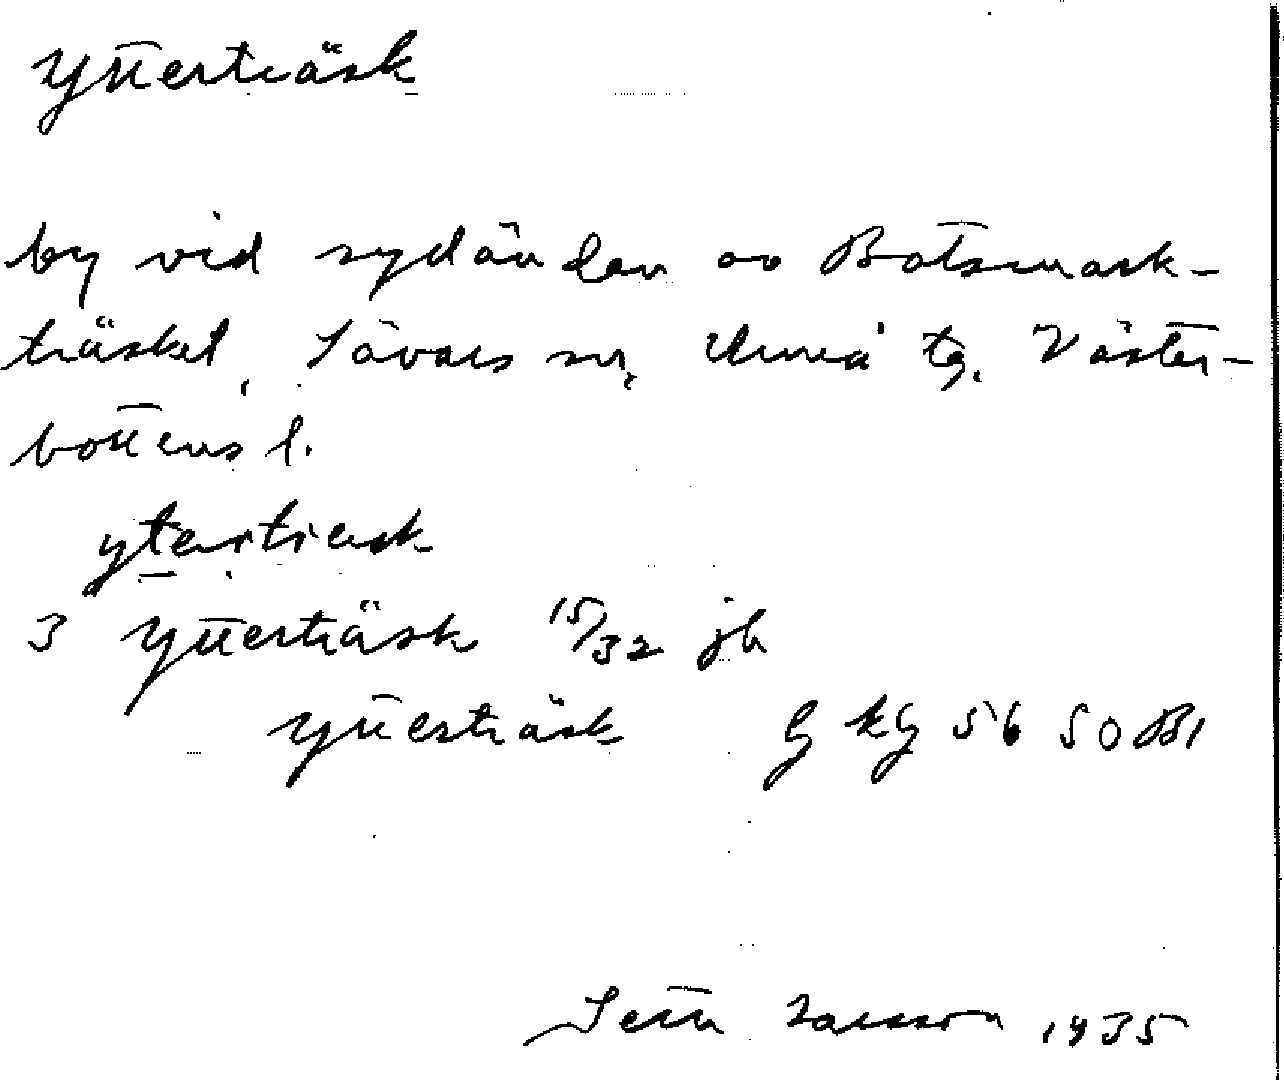 Ytterträsk
by vid sydänden av Botsmark-
träsket, Sävars sn, Umeå tg. Väster-
bottens l.
yterträsk
3 Ytterträsk 15/32 jb
Ytterträsk G kg 56 SO Bl
Seth Larsson 1935